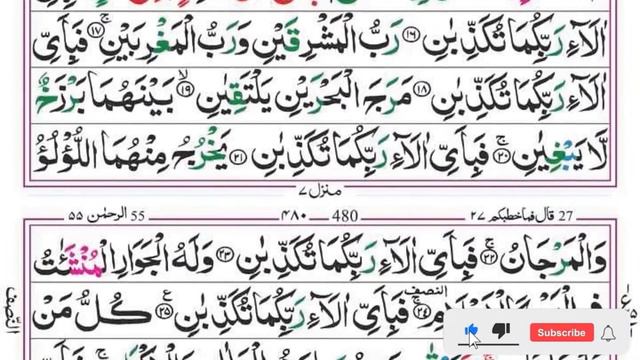 اٰلَآءِ رَبِّكُمَا تُكَذِّبٰنِ ﴿۱۶﴾ رَبُّ الْمَشْرِقَيْنِ وَرَبُّ الْمَغْرِبَيْنِ ۚ﴿۱۷﴾ فَبِاَيِّ
اٰلَآءِ رَبِّكُمَا تُكَذِّبٰنِ ﴿۱۸﴾ مَرَجَ الْبَحْرَيْنِ يَلْتَقِيٰنِ ۙ﴿۱۹﴾ بَيْنَهُمَا بَرْزَخٌ
لَّا يَبْغِيٰنِ ۚ﴿۲۰﴾ فَبِاَيِّ اٰلَآءِ رَبِّكُمَا تُكَذِّبٰنِ ﴿۲۱﴾ يَخْرُجُ مِنْهُمَا اللُّؤْلُؤُ
منزل ۷
27 قال فما خطبكم ۲۷ 480 ۴۸۰ 55 الرحمٰن ۵۵
وَالْمَرْجَانُ ۚ﴿۲۲﴾ فَبِاَيِّ اٰلَآءِ رَبِّكُمَا تُكَذِّبٰنِ ﴿۲۳﴾ وَلَهُ الْجَوَارِ الْمُنْشَـٰٔتُ
النصف
﴿۲۴﴾ فَبِاَيِّ اٰلَآءِ رَبِّكُمَا تُكَذِّبٰنِ ﴿۲۵﴾ ع كُلُّ مَنْ
النصف
Subscribe